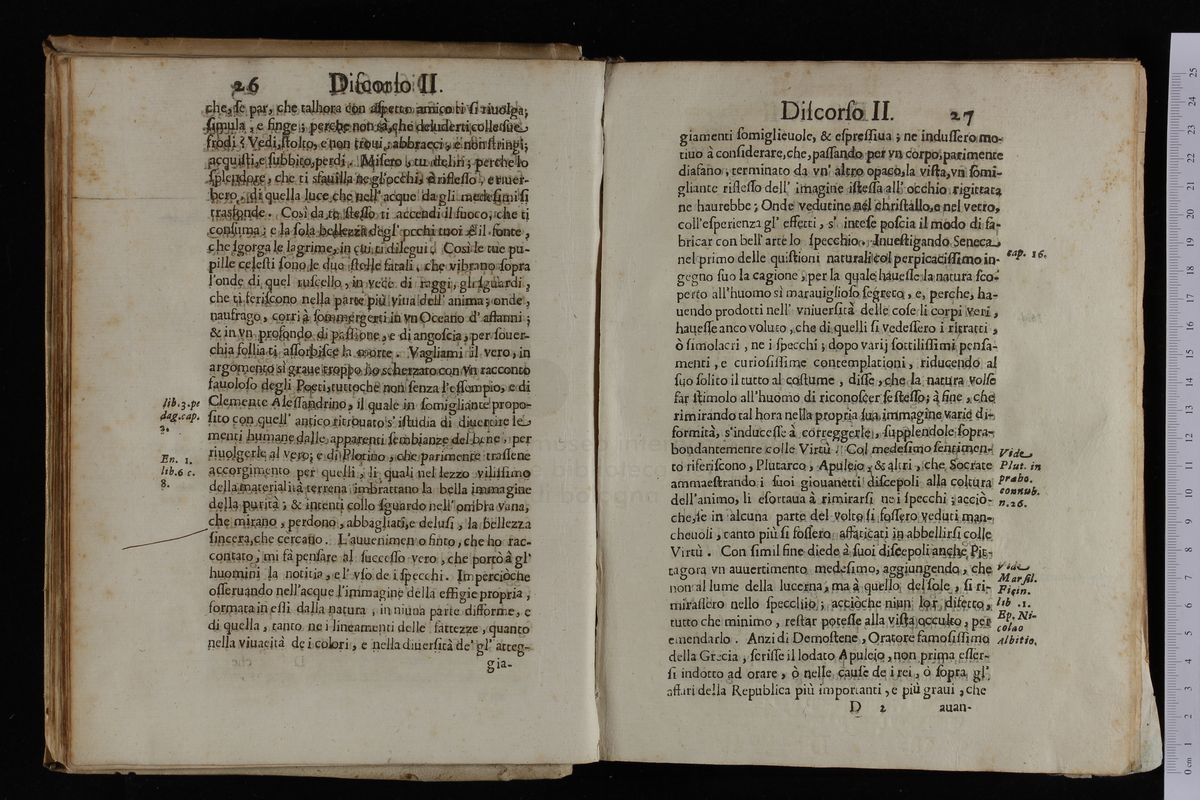 26 Diſcorſo II.
che, ſe par, che talhora con aſpetto amico ti ſi riuolga;
ſimula, e finge; perche non sà, che deluderti colle ſue
frodi? Vedi, ſtolto, e non troui; abbracci, e non ſtringi;
acquiſti, e ſubbito, perdi. Miſero, tu deliri; perche lo
ſplendore, che ti sfauilla ne gl'occhi, è rifleſſo, e riuer-
bero, di quella luce, che nell' acque da gli medeſimi ſi
trasfonde. Così da te ſteſſo ti accendi il fuoco, che ti
conſuma; e la ſola bellezza degl' occhi tuoi è il fonte,
che ſgorga le lagrime, in cui ti dilegui. Così le tue pu-
pille celeſti ſono le due ſtelle fatali, che vibrano ſopra
l'onde di quel ruſcello, in vece di raggi, gli ſguardi,
che ti feriſcono nella parte più viua dell' anima; onde,
naufrago, corri à ſommergerti in vn Oceano d' affanni;
& in vn profondo di paſſione, e di angoſcia, per ſouer-
chia follia ti aſſorbiſce la morte. Vagliami il vero, in
argomento sì graue troppo hò scherzato con vn racconto
fauoloſo degli Poeti, tuttoche non ſenza l'eſſempio, e di
Clemente Aleſſandrino, il quale in ſomigliante propo-
ſito con quell' antico ritrouato s' iſtudia di diuertire le
menti humane dalle apparenti ſembianze del bene, per
riuolgerle al vero; e di Plotino, che parimente traſſene
accorgimento per quelli, li quali nel lezzo viliſſimo
della materialità terrena imbrattano la bella immagine
della purità; & intenti collo ſguardo nell' ombra vana,
che mirano, perdono, abbagliati, e deluſi, la bellezza
ſincera, che cercano. L'auuenimento finto, che ho rac-
contato, mi fà penſare al ſucceſſo vero, che portò à gl'
huomini la notitia, e l' vſo de i ſpecchi. Imperciòche
oſſeruando nell'acque l'immagine della effigie propria,
formata in eſſi dalla natura, in niuna parte difforme, e
di quella, tanto ne i lineamenti delle fattezze, quanto
nella viuacità de i colori, e nella diuerſità de' gl' atteg-
gia-
lib. 3. pe
dag. cap.
2.
En. 1.
lib. 6 c.
8.
Diſcorſo II. 27
giamenti ſomiglieuole, & eſpreſſiua; ne induſſero mo-
tiuo à conſiderare, che, paſſando per vn corpo, parimente
diafano, terminato da vn' altro opaco, la viſta, vn ſomi-
gliante rifleſſo dell' imagine iſteſſa all' occhio rigittata
ne haurebbe; Onde vedutine nel chriſtallo, e nel vetro,
coll'eſperienza gl' effetti, s' inteſe poſcia il modo di fa-
bricar con bell' arte lo ſpecchio. Inueſtigando Seneca
nel primo delle quiſtioni naturali col perpicaciſſimo in-
gegno ſuo la cagione, per la quale haueſſe la natura ſco-
perto all'huomo sì marauiglioſo ſegreto, e, perche, ha-
uendo prodotti nell' vniuerſità delle coſe li corpi veri,
haueſſe anco voluto, che di quelli ſi vedeſſero i ritratti,
ò ſimolacri, ne i ſpecchi; dopo varij ſottiliſſimi penſa-
menti, e curioſiſſime contemplationi, riducendo al
ſuo ſolito il tutto al coſtume, diſſe, che la natura volſe
far ſtimolo all'huomo di riconoſcer ſe ſteſſo; à fine, che
rimirando tal hora nella propria ſua immagine varie di-
formità, s'induceſſe à correggerle, ſupplendole ſopra-
bondantemente colle Virtù. Col medeſimo ſentimen-
to riferiſcono, Plutarco, Apuleio, & altri, che Socrate
ammaeſtrando i ſuoi giouanetti diſcepoli alla coltura
dell'animo, li eſortaua à rimirarſi ne i ſpecchi; acciò-
che, ſe in alcuna parte del volto ſi foſſero veduti man-
cheuoli, tanto più ſi foſſero affaticati in abbellirſi colle
Virtù. Con ſimil fine diede à ſuoi diſcepoli anche Pit-
tagora vn auuertimento medeſimo, aggiungendo, che
non al lume della lucerna, ma à quello del ſole, ſi ri-
miraſſero nello ſpecchio; acciòche niun lor difetto,
tutto che minimo, reſtar poteſſe alla viſta occulto, per
emendarlo. Anzi di Demoſtene, Oratore famoſiſſimo
della Grecia, ſcriſſe il lodato Apuleio, non prima eſſer-
ſi indotto ad orare, ò nelle cauſe de i rei, ò ſopra gl'
affari della Republica più importanti, e più graui, che
D 2 auan-
cap. 16.
Vide
Plut. in
præbo.
connub.
n. 26.
Vide
Marſil.
Ficin.
lib. 1.
Ep. Ni-
colao
Albitio.